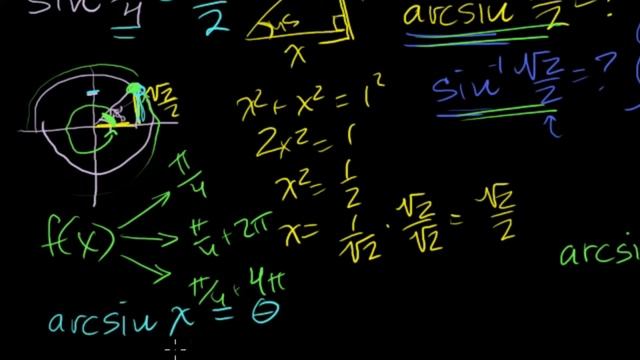 sin π/4 = √2/2
45
x
arcsin √2/2 = ?
sin⁻¹ √2/2 = ?
√2/2
x² + x² = 1²
2x² = 1
x² = 1/2
x = 1/√2 · √2/√2 = √2/2
f(x)
π/4
π/4 + 2π
π/4 + 4π
arcsin x = θ
arcsi